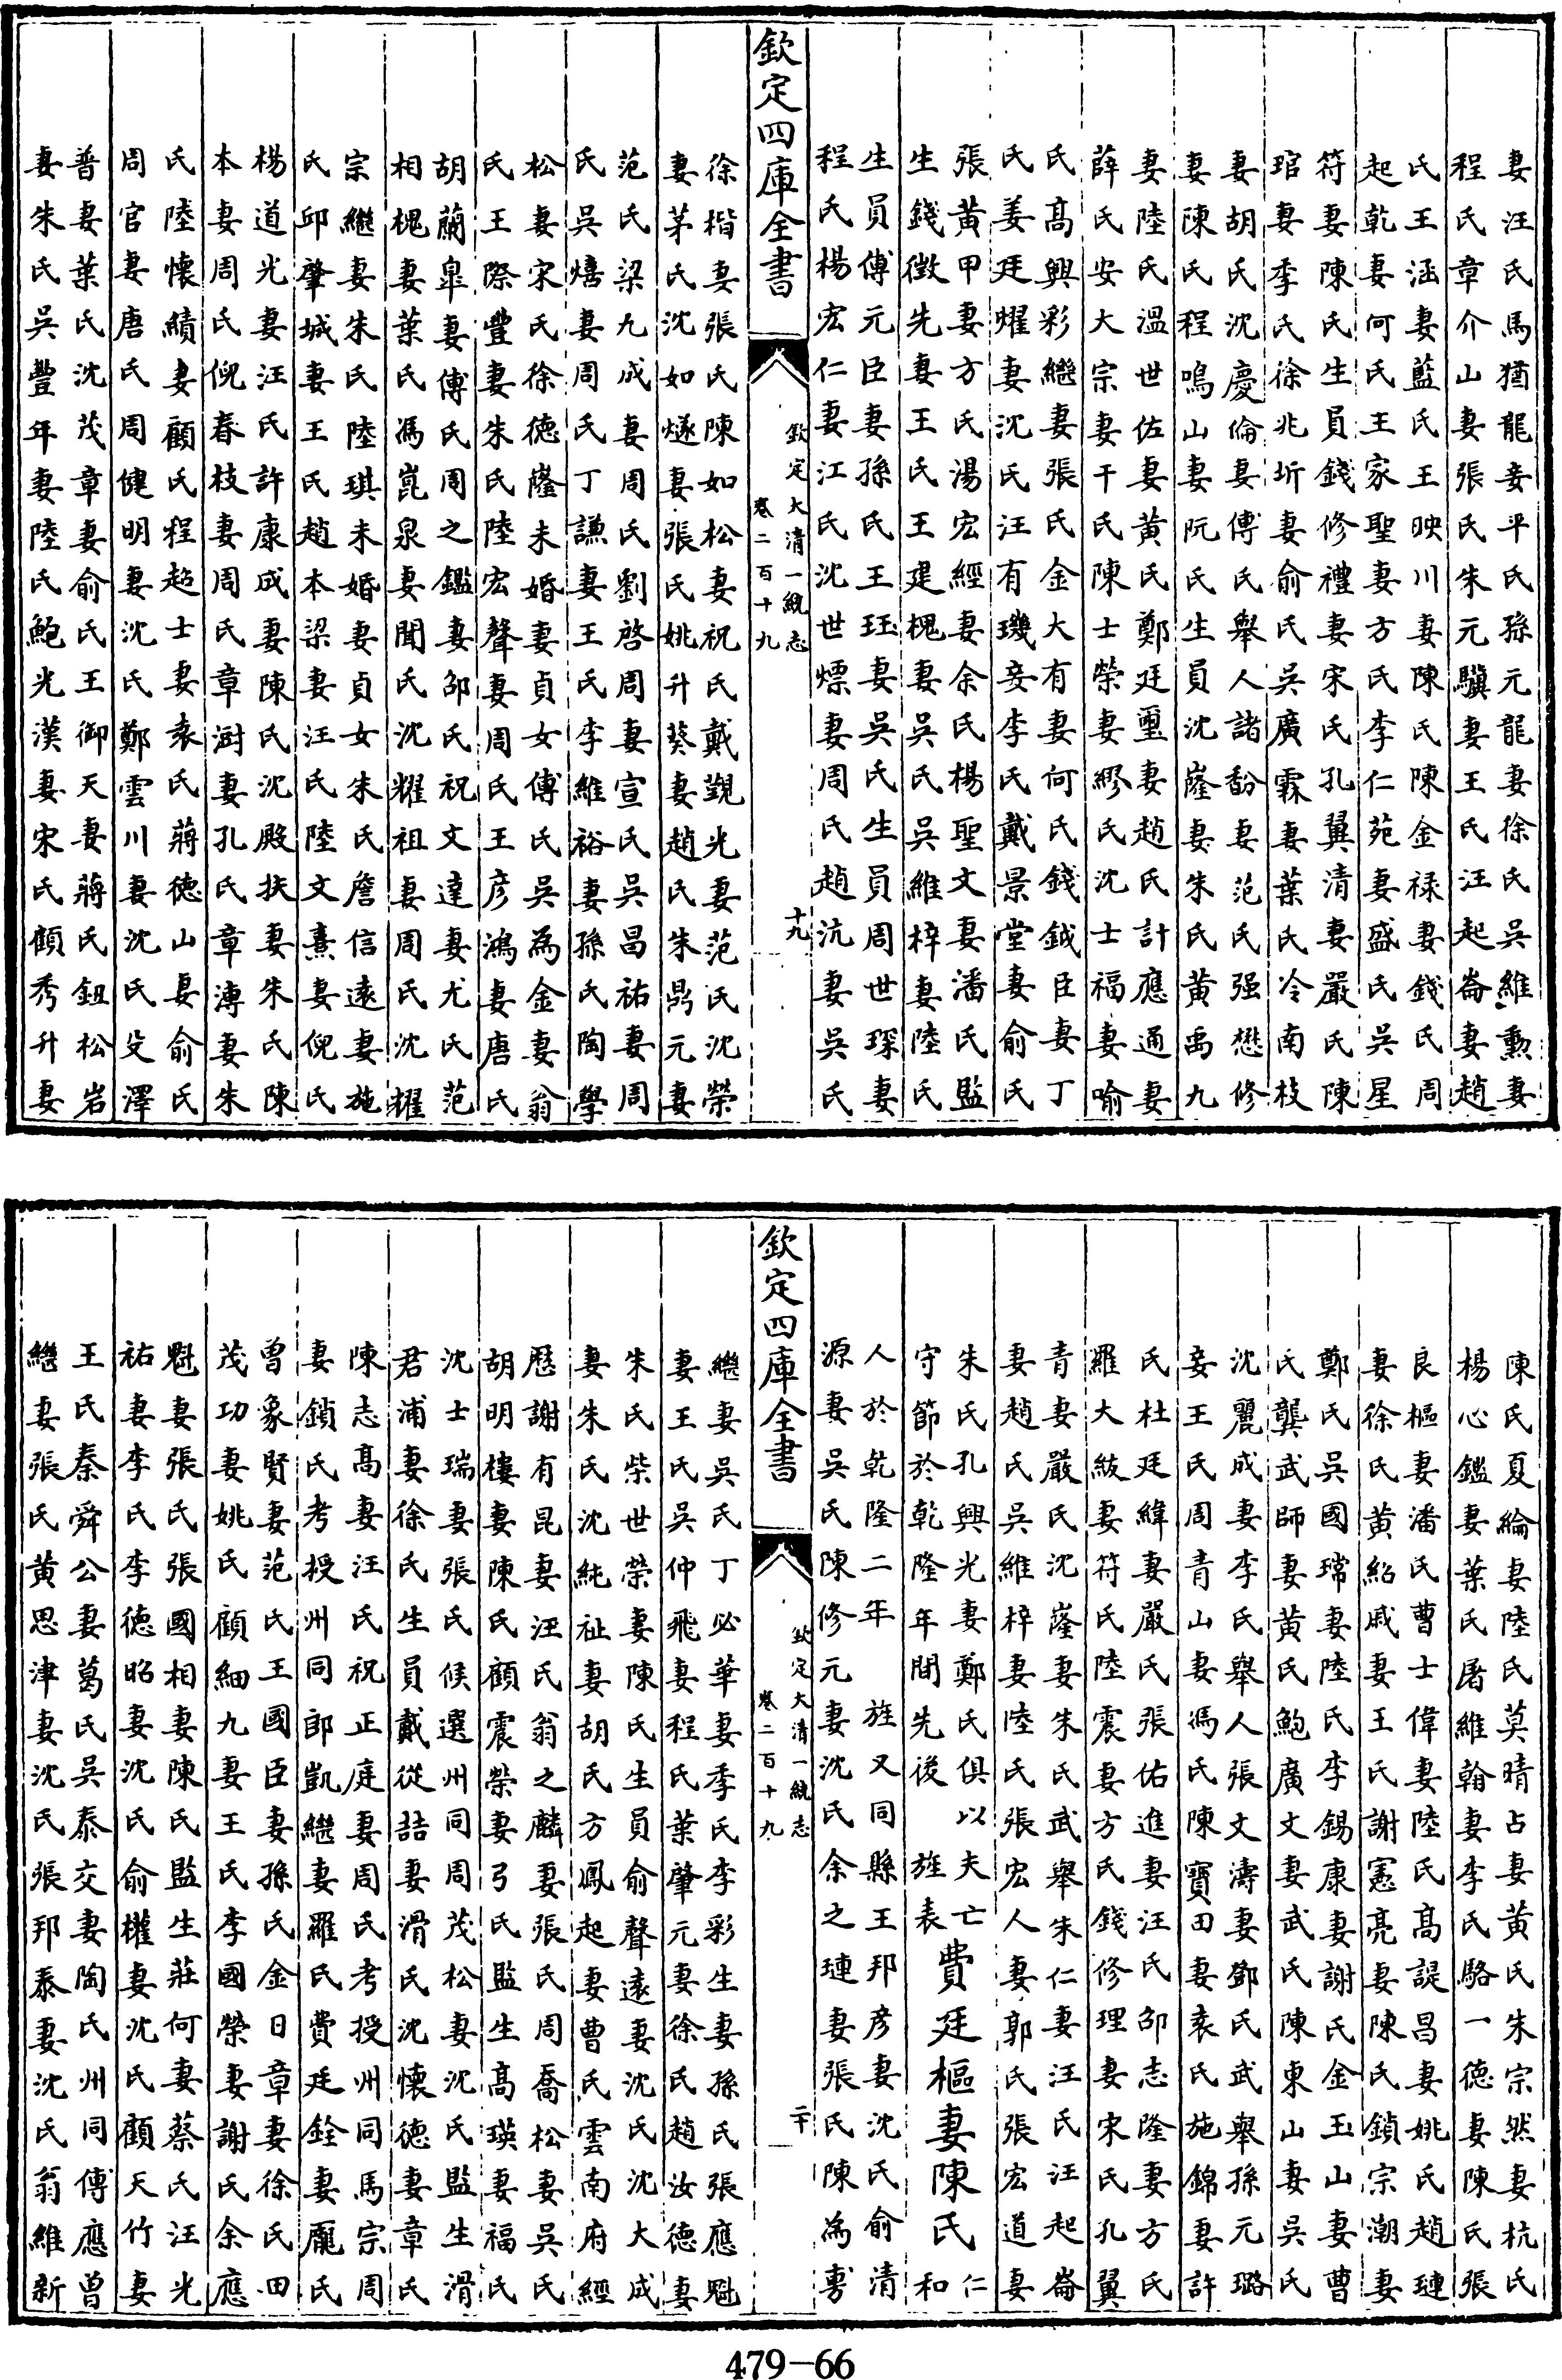 妻汪氏馬猶龍妾平氏孫元龍妻徐氏吳維勳妻
程氏章介山妻張氏朱元驥妻王氏汪起崙妻趙
氏王涵妻藍氏王映川妻陳氏陳金祿妻錢氏周
起乾妻何氏王家聖妻方氏李仁苑妻盛氏吳星
符妻陳氏生員錢修禮妻宋氏孔翼清妻嚴氏陳
琯妻季氏徐兆圻妻俞氏吳廣霖妻葉氏冷南枝
妻胡氏沈慶倫妻傅氏舉人諸馚妻范氏强懋修
妻陳氏程鳴山妻阮氏生員沈蕯妻朱氏黄禹九
妻陸氏溫世佐妻黄氏鄭廷璽妻趙氏計應通妻
薛氏安大宗妻干氏陳士榮妻繆氏沈士福妻喻
氏髙興彩繼妻張氏金大有妻何氏錢鉞臣妻丁
氏姜廷燿妻沈氏汪有璣妾李氏戴景堂妻俞氏
張黄甲妻方氏湯宏經妻余氏楊聖文妻潘氏監
生錢徵先妻王氏王建槐妻吳氏吳維梓妻陸氏
生員傅元臣妻孫氏王珏妻吳氏生員周世琛妻
程氏楊宏仁妻江氏沈世㷸妻周氏趙沆妻吳氏
欽定四庫全書
欽定大清一統志
卷二百十九
十九
徐楷妻張氏陳如松妻祝氏戴覲光妻范氏沈榮
妻茅氏沈如燧妻張氏姚升葵妻趙氏朱鼎元妻
范氏梁九成妻周氏劉啓周妻宣氏吳昌祐妻周
氏吳熺妻周氏丁謙妻王氏李維裕妻孫氏陶學
松妻宋氏徐德蕯未婚妻貞女傅氏吳為金妻翁
氏王際豐妻朱氏陸宏聲妻周氏王彦鴻妻唐氏
胡蘭臯妻傅氏周之鑑妻邵氏祝文達妻尤氏范
相槐妻葉氏馮崑泉妻聞氏沈耀祖妻周氏沈耀
宗繼妻朱氏陸琪未婚妻貞女朱氏詹信遠妻施
氏邱肇城妻王氏趙本梁妻汪氏陸文熹妻倪氏
楊道光妻汪氏許康成妻陳氏沈殿扶妻朱氏陳
本妻周氏倪春枝妻周氏章澍妻孔氏章溥妻朱
氏陸懷績妻顧氏程超士妻袁氏蔣德山妻俞氏
周官妻唐氏周健明妻沈氏鄭雲川妻沈氏殳澤
普妻葉氏沈茂章妻俞氏王御天妻蔣氏鈕松岩
妻朱氏吳豐年妻陸氏鮑光漢妻宋氏顧秀升妻
陳氏夏綸妻陸氏莫晴占妻黄氏朱宗然妻杭氏
楊心鑑妻葉氏屠維翰妻李氏駱一德妻陳氏張
良樞妻潘氏曹士偉妻陸氏髙諟昌妻姚氏趙璉
妻徐氏黄紹戚妻王氏謝憲亮妻陳氏鎖宗潮妻
鄭氏吳國瑺妻陸氏李錫康妻謝氏金玉山妻曹
氏龔武師妻黄氏鮑廣文妻武氏陳東山妻吳氏
沈麗成妻李氏舉人張文濤妻鄧氏武舉孫元璐
妾王氏周青山妻馮氏陳寶田妻袁氏施錦妻許
氏杜廷緯妻嚴氏張佑進妻汪氏邵志隆妻方氏
羅大紱妻符氏陸震妻方氏錢修理妻宋氏孔翼
青妻嚴氏沈蕯妻朱氏武舉朱仁妻汪氏汪起崙
妻趙氏吳維梓妻陸氏張宏人妻郭氏張宏道妻
朱氏孔興光妻鄭氏俱以夫亡
守節於乾隆年間先後 旌表費廷樞妻陳氏仁和
人於乾隆二年 旌又同縣王邦彦妻沈氏俞清
源妻吳氏陳修元妻沈氏余之璉妻張氏陳為旉
欽定四庫全書
欽定大清一統志
卷二百十九
二十
繼妻吳氏丁必華妻季氏李彩生妻孫氏張應魁
妻王氏吳仲飛妻程氏葉肇元妻徐氏趙汝德妻
朱氏柴世榮妻陳氏生員俞聲遠妻沈氏沈大成
妻朱氏沈純祉妻胡氏方鳳起妻曹氏雲南府經
歷謝有昆妻汪氏翁之麟妻張氏周喬松妻吳氏
胡明樓妻陳氏顧震榮妻弓氏監生髙瑛妻福氏
沈士瑞妻張氏候選州同周茂松妻沈氏監生滑
君浦妻徐氏生員戴從喆妻滑氏沈懷德妻章氏
陳志髙妻汪氏祝正庭妻周氏考授州同馬宗周
妻鎖氏考授州同郎凱繼妻羅氏費廷銓妻龎氏
曾象賢妻范氏王國臣妻孫氏金日章妻徐氏田
茂功妻姚氏顧細九妻王氏李國榮妻謝氏余應
魁妻張氏張國相妻陳氏監生莊何妻蔡氏汪光
祐妻李氏李德昭妻沈氏俞權妻沈氏顧天竹妻
王氏秦舜公妻葛氏吳泰交妻陶氏州同傅應曾
繼妻張氏黄思津妻沈氏張邦泰妻沈氏翁維新
479-66